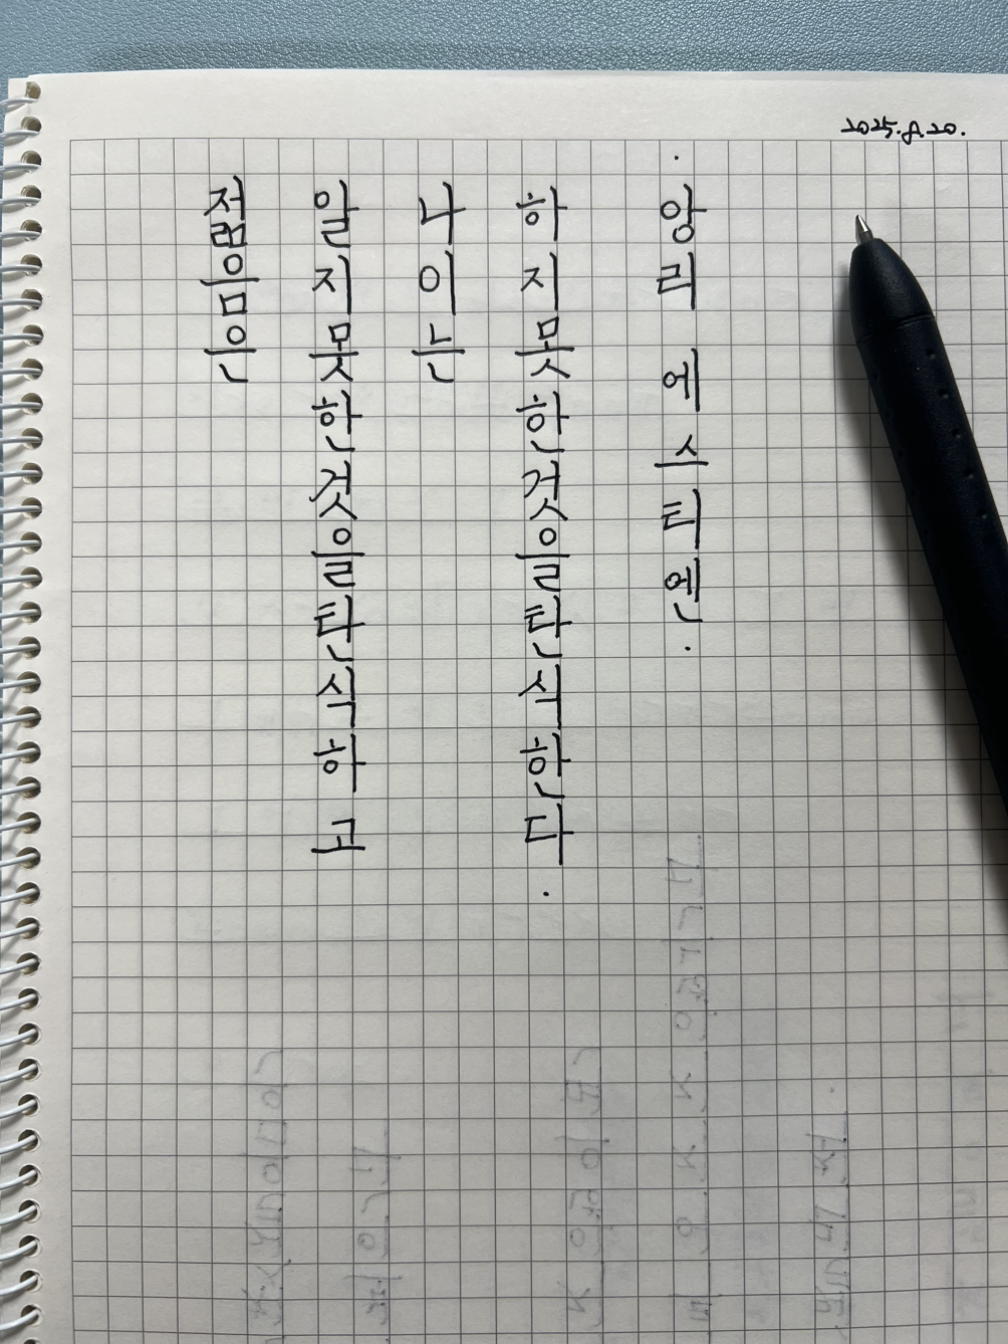 2025.8.20.
젊음은
알지못한것을탄식하고
나이는
하지못한것을탄식한다.
·앙리 에스티엔·